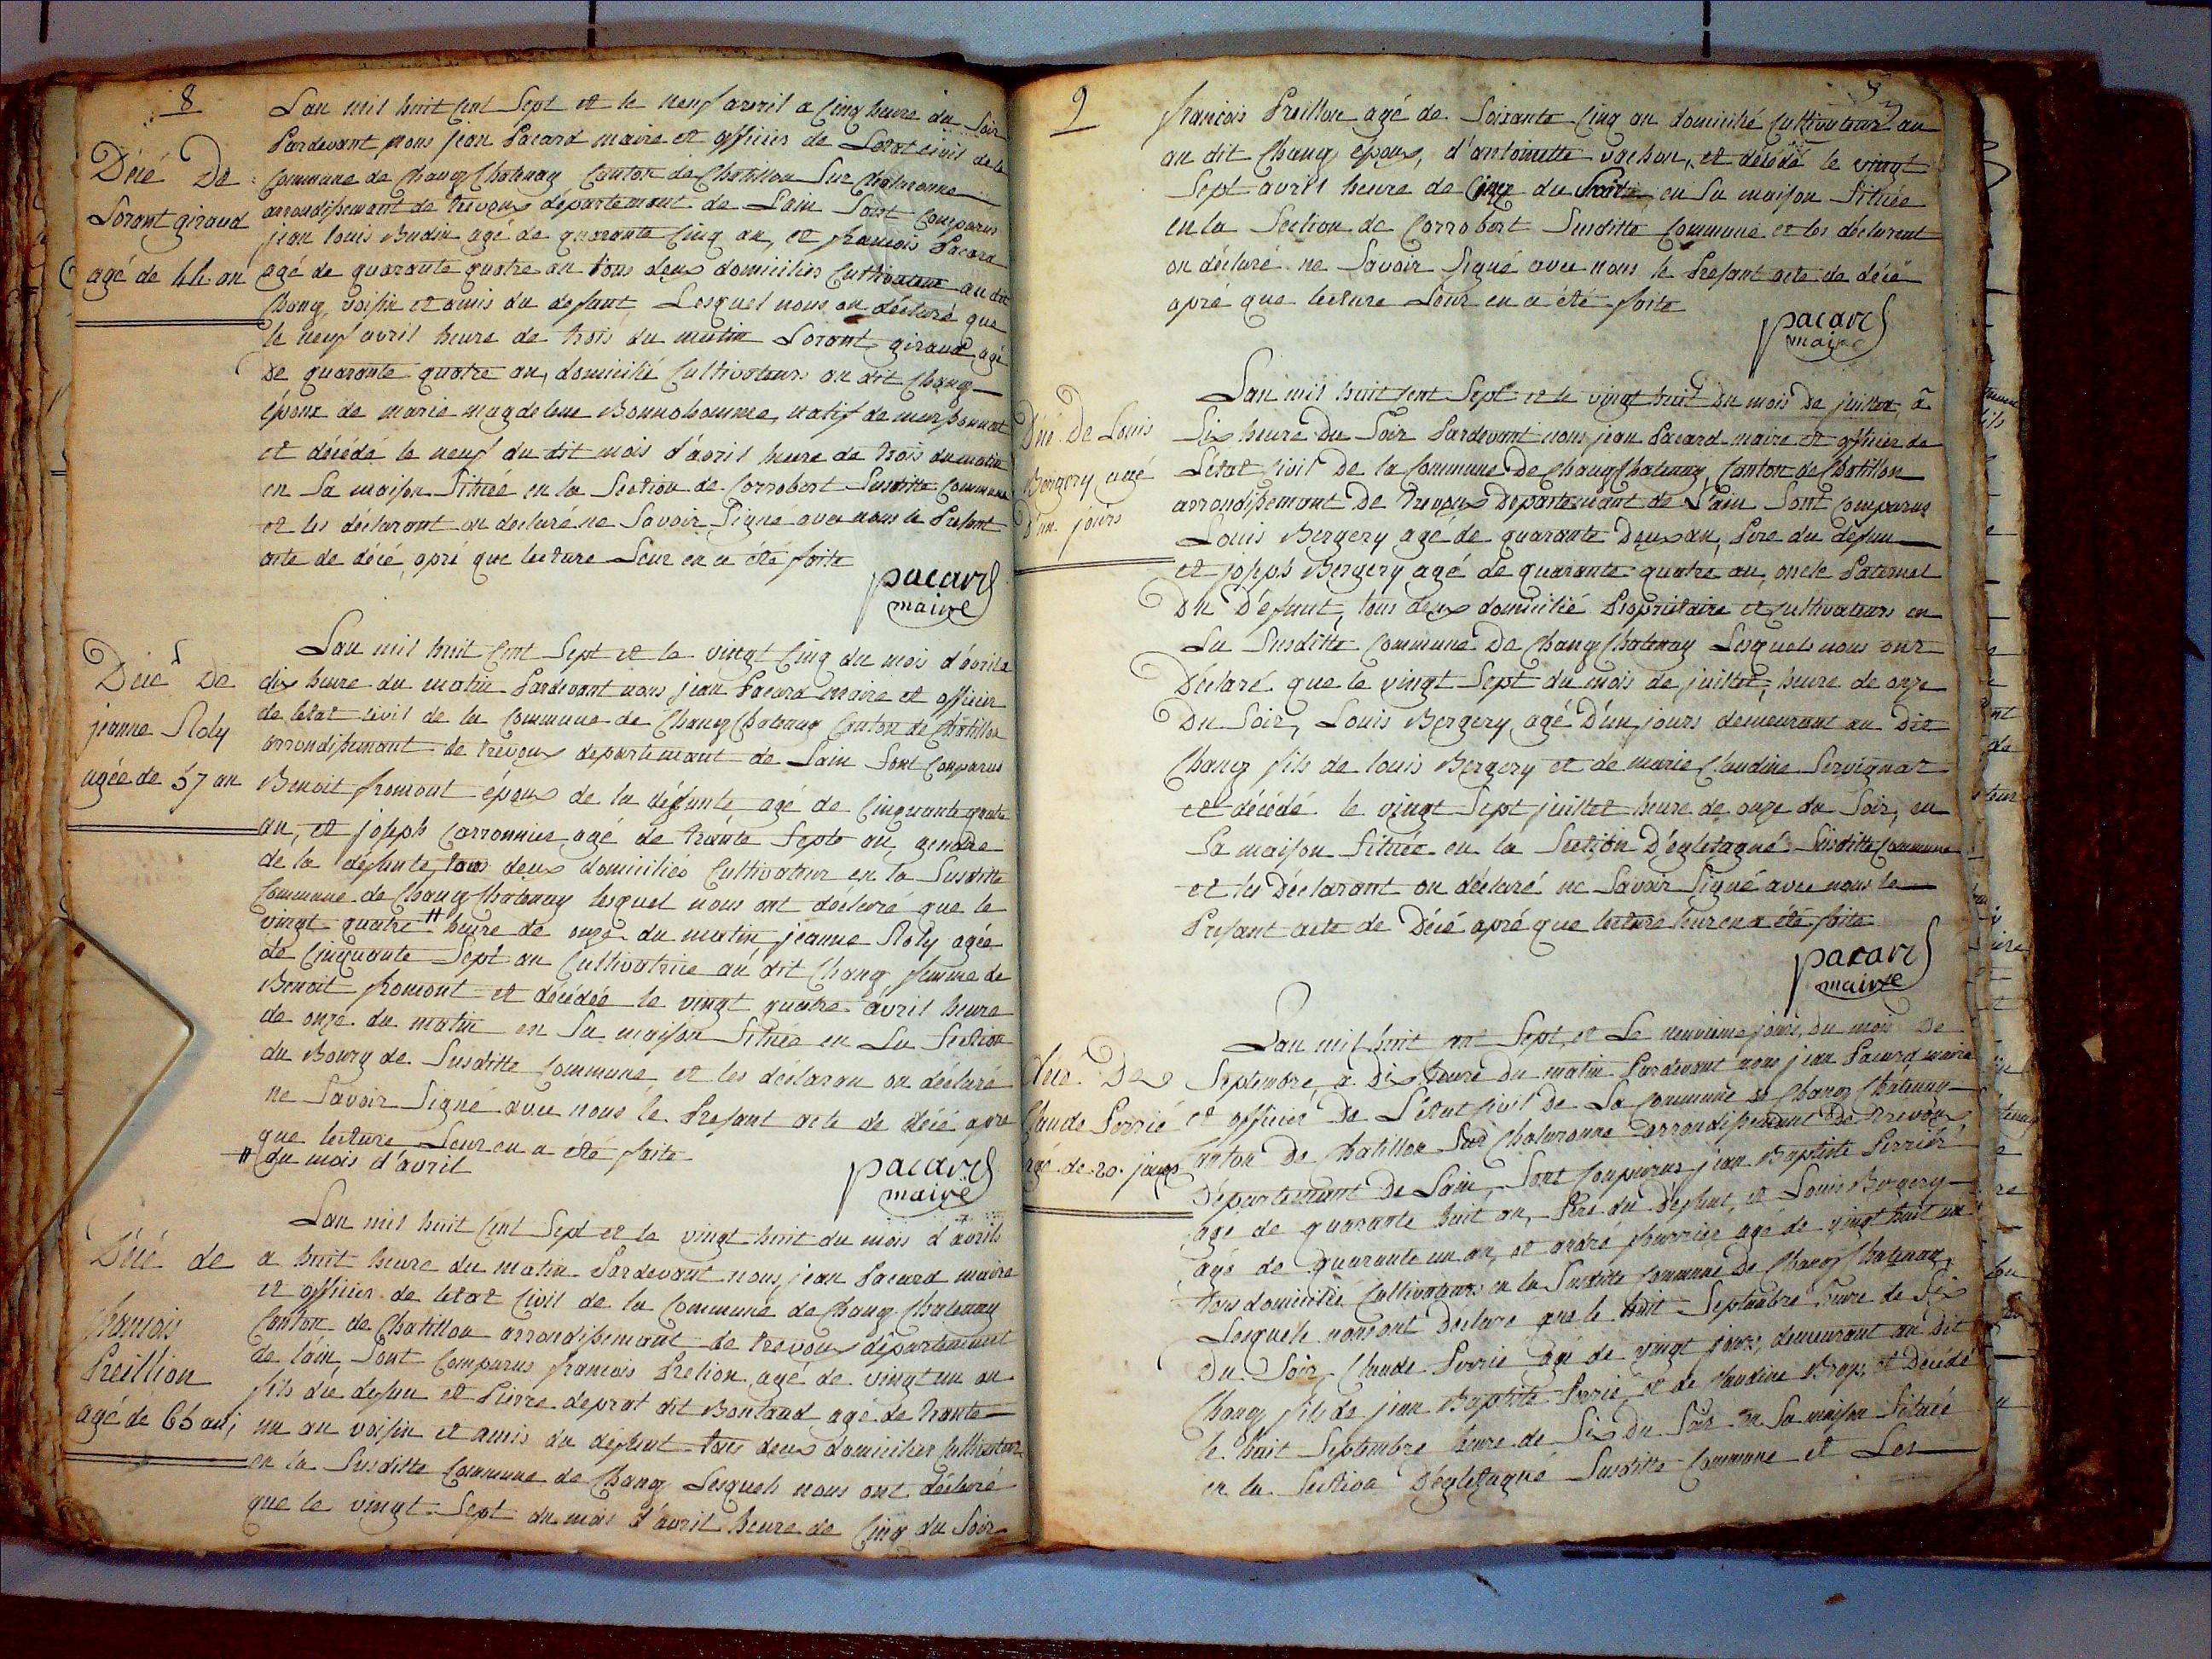 8
Décé De
Lorant giraud
agé de 44 an
Lan mil huit Cent Sept et le neuf avril a Cinq heure du Soir
Pardevant nous jean Pacard maire et officier de Létat civil de la
Commune de Chanoz Chatenay Canton de Chatillon Sur Chalaronne
arrondissemant de trevoux département de Lain Sont Comparus
jean louis Budin agé de quarante Cinq an, et francois Pacard
agé de quarante quatre an tous deux domiciliés Cultivateur au dit
Chanoz, voisin et amis du defunt Lesquel nous on déclaré que
le neuf avril heure de trois du matin Lorant giraud agé
De quarante quatre an, domicilié Cultivateurs au dit Chanoz
époux de marie magdeleine Bonnohomme, natif de
et décédé le neuf du dit mois d'avril heure de trois du matin
en Sa maison Située en la Section de Corrobert Susditte Commune
et les déclarant on declaré ne Savoir Signé avec nous le Présant
acte de décé, apré que lecture Leur en a été faite
pacard
maire
Décé De
jeanne Roly
agée de 57 an
Lan mil huit Cent Sept et le vingt Cinq du mois d'avril a
dix heure du matin Pardevant nous jean Pacard maire et officier
de letat civil de la Commune de Chanoz Chatenay Canton de Chatillon
arrondissemant de trevoux departemant de Lain Sont Comparus
Benoit fromont époux de la défunte, agé de Cinquante quatre
an, et joseph Carronnier agé de trante Septe an, gendre
de la défunte, tous deux domiciliés Cultivateur en la Susditte
Commune de Chanoz Chatenay lesquel nous ont déclaré que le
vingt quatre # heure de onze du matin jeanne Roly agée
de Cinquante Sept an Cultivatrice au dit Chanoz, femme de
Benoit fromont et décédée le vingt quatre avril heure
de onze du matin en Sa maison Située en La Section
du Bourg de Susditte Commune, et les déclaran on déclaré
ne Savoir Signé avec nous le Présant acte de décé apre
que lecture Leur en a été faite
# du mois d'avril
pacard
maire
Décé de
francois
Preillion
agé de 65 ans
Lan mil huit Cent Sept et le vingt huit du mois d'avril
a huit heure du matin Pardevant nous, jean Pacard maire
et officier de létat Civil de la Commune de Chanoz Chatenay
Canton de Chatillon arrondissemant de trevoux département
de lain, Sont Comparus francois Prelion agé de vingt un an
fils dé defun et Pierre deprat dit Bontand agé de trante
un an voisin et amis du défunt tous deux domicilier Cultivateur
en la Susditte Commune de Chanoz Lesquels nous ont déclaré
que le vingt Sept du mois d'avril heure de Cinq du Soir
9
francois Preillon agé de Soixante Cinq an domicilié Cultivateur au
au dit Chanoz époux, d'antoinette vachon, et décédé le vingt
Sept avril heure de Cinq du en Sa maison Située
en la Section de Corrobert Susditte Commune et les déclarent
on déclaré ne Savoir Signé avec nous le Présant acte de décé
apré que lecture Leur en a été faite
pacard
maire
Décé De Louis
Bergery agé
D'un jours
Lan mil huit Cent Sept et le vingt huit Du mois De juillet, à
Six heure Du Soir Pardevant nous jean Pacard maire et officier de
L'état Civil De la Commune De Chanoz Chatenay, Canton de Chatillon
arrondissemant De trevoux Departemant de L'ain Sont Comparus
Louis Bergery agé de quarante Deux an, Pere du défun
et joseph Bergery agé de quarante quatre an, oncle Paternel
Du Défunt, tous deux domicilié Propriétaire et cultivateurs en
La Susditte Commune De Chanoz Chatenay Lesquels nous ont
Déclaré que le vingt Sept du mois de juillet, heure de onze
Du Soir, Louis Bergery, agé D'un jours demeurant au Dit
Chanoz fils de louis Bergery et de marie Claudine Servignat
et décédé le vingt Sept juillet heure de onze du Soir, en
Sa maison Située en la Section D'égletagné Susditte Commune
et les Déclarant on déclaré ne Savoir Signé avec nous le
Présant acte de Décé apré que lecture leur en a été faite
pacard
maire
décé De
Claude Perrié
agé de 20 jours
Lan mil huit Sept, et Le neuvième jours, du mois De
Septembre, a Dix heure Du matin Pardevant nous jean Pacard maire
et officier De L'état Civil De La Commune de Chanoz Châtenay
Canton De Chatillon Sur Chalaronne arrondissemant De trevoux
Départemant De Lain, Sont Comparus jean Baptiste Perrier
age de quarante huit an, Pere du Defunt, et Louis Bergery
agé de quarante un an, et andré agé de vingt huit an
tous domicilié Cultivateurs en la Susditte Commune De Chanoz Chatenay,
Lesquels nous ont Déclare que le huit Septembre heure de Six
Du Soir, Claude Perrié agé de vingt jours, demeurant au Dit
Chanoz fils de jean Baptiste Perrié, et de Claudine et Décédé
le huit Septembre heure de Six Du Soir en Sa maison Située
en la Section D'égletagné Susditte Commune et Les